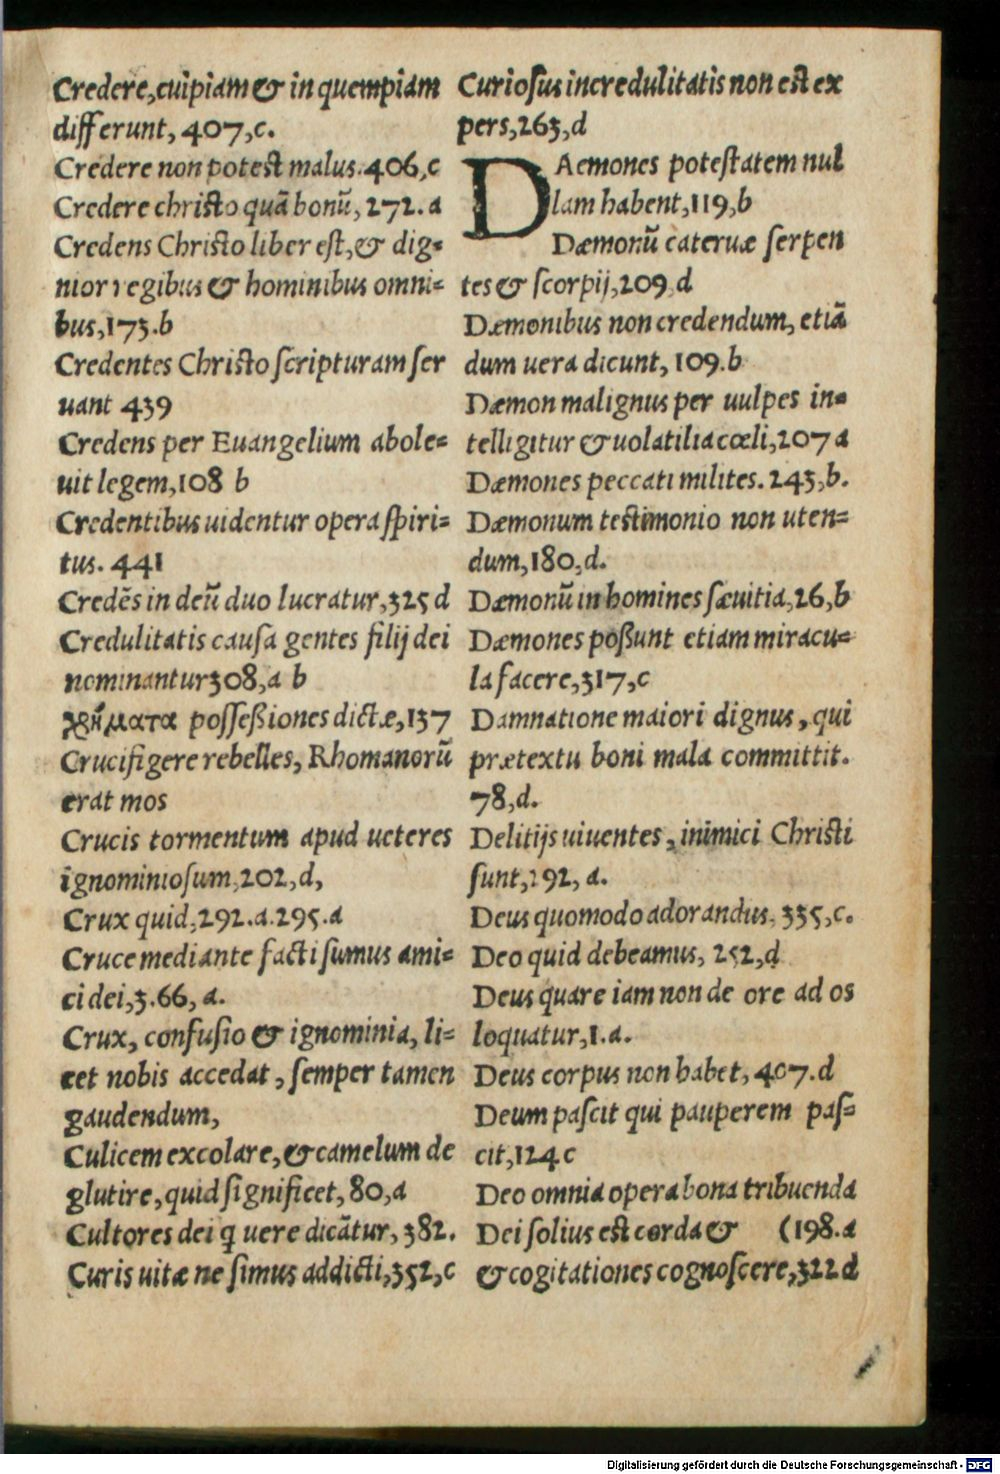 Credere, cuipiam & in quempiam
differunt, 407, c.
Credere non potest malus. 406, c
Credere christo quā bonū, 272. a
Credens Christo liber est, & dig=
nior regibus & hominibus omni=
bus, 173. b
Credentes Christo scripturam ser
uant 439
Credens per Euangelium abole=
uit legem, 108 b
Credentibus uidentur opera spiri=
tus. 441
Credēs in deū duo lucratur, 325 d
Credulitatis causa gentes filij dei
nominantur 308, a b
χρήματα possessiones dictæ, 137
Crucifigere rebelles, Rhomanorū
erat mos
Crucis tormentum apud ueteres
ignominiosum, 202, d,
Crux quid, 292. a. 295. a
Cruce mediante facti sumus ami=
ci dei, 3. 66, a.
Crux, confusio & ignominia, li=
cet nobis accedat, semper tamen
gaudendum,
Culicem excolare, & camelum de
glutire, quid significet, 80, a
Cultores dei q uere dicātur, 382.
Curis uitæ ne simus addicti, 352, c
Curiosus incredulitatis non est ex
pers, 263, d
DAemones potestatem nul
lam habent, 119, b
Dæmonū cateruæ serpen
tes & scorpij, 209 d
Dæmonibus non credendum, etiā
dum uera dicunt, 109. b
Dæmon malignus per uulpes in=
telligitur & uolatilia cœli, 207 a
Dæmones peccati milites. 243, b.
Dæmonum testimonio non uten=
dum, 180, d.
Dæmonū in homines sæuitia, 26, b
Dæmones possunt etiam miracu=
la facere, 317, c
Damnatione maiori dignus, qui
prætextu boni mala committit.
78, d.
Delitijs uiuentes, inimici Christi
sunt, 292, a.
Deus quomodo adorandus, 335, c.
Deo quid debeamus, 252, d
Deus quare iam non de ore ad os
loquatur, 1. a.
Deus corpus non habet, 407. d
Deum pascit qui pauperem pas=
cit, 124 c
Deo omnia opera bona tribuenda
Dei solius est corda & (198. a
& cogitationes cognoscere, 322 d
Digitalisierung gefördert durch die Deutsche Forschungsgemeinschaft - DFG